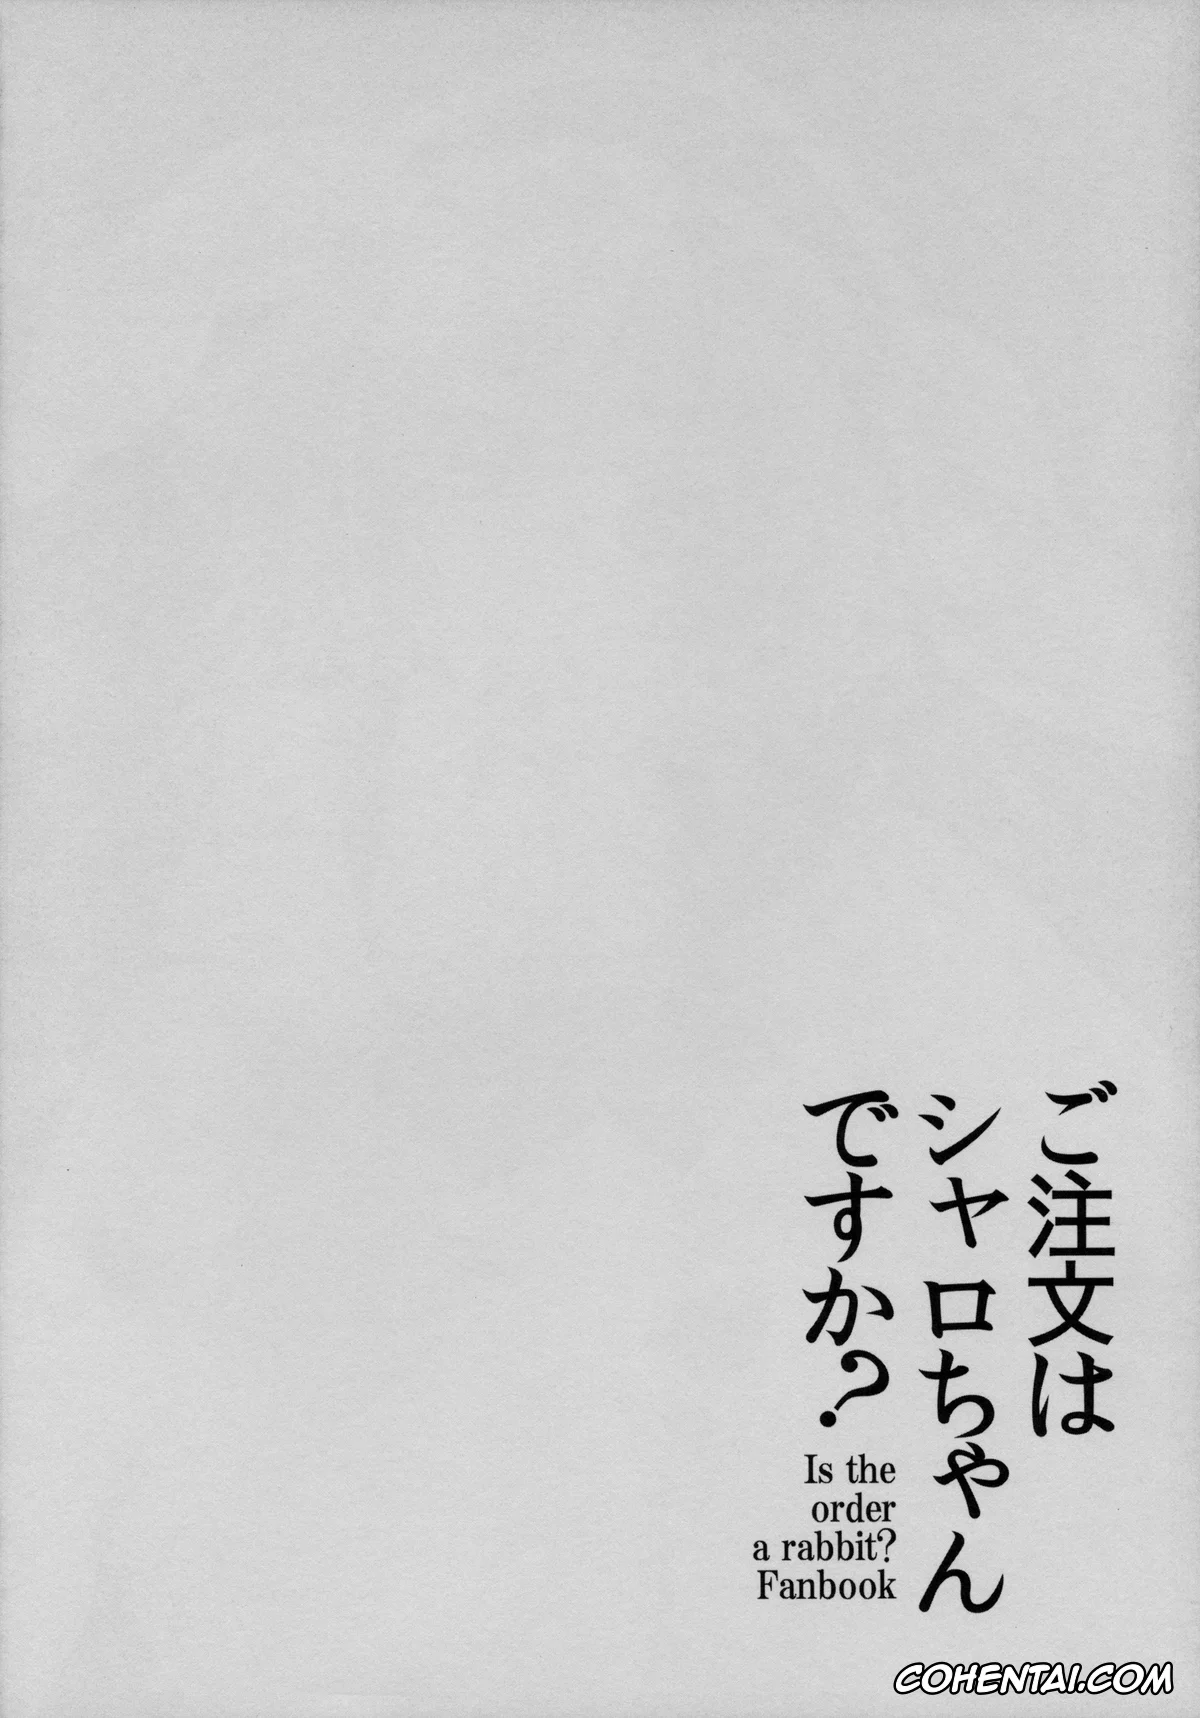 ご注文は
シャロちゃん
ですか?
Is the
order
a rabbit?
Fanbook
COHENTAI.COM